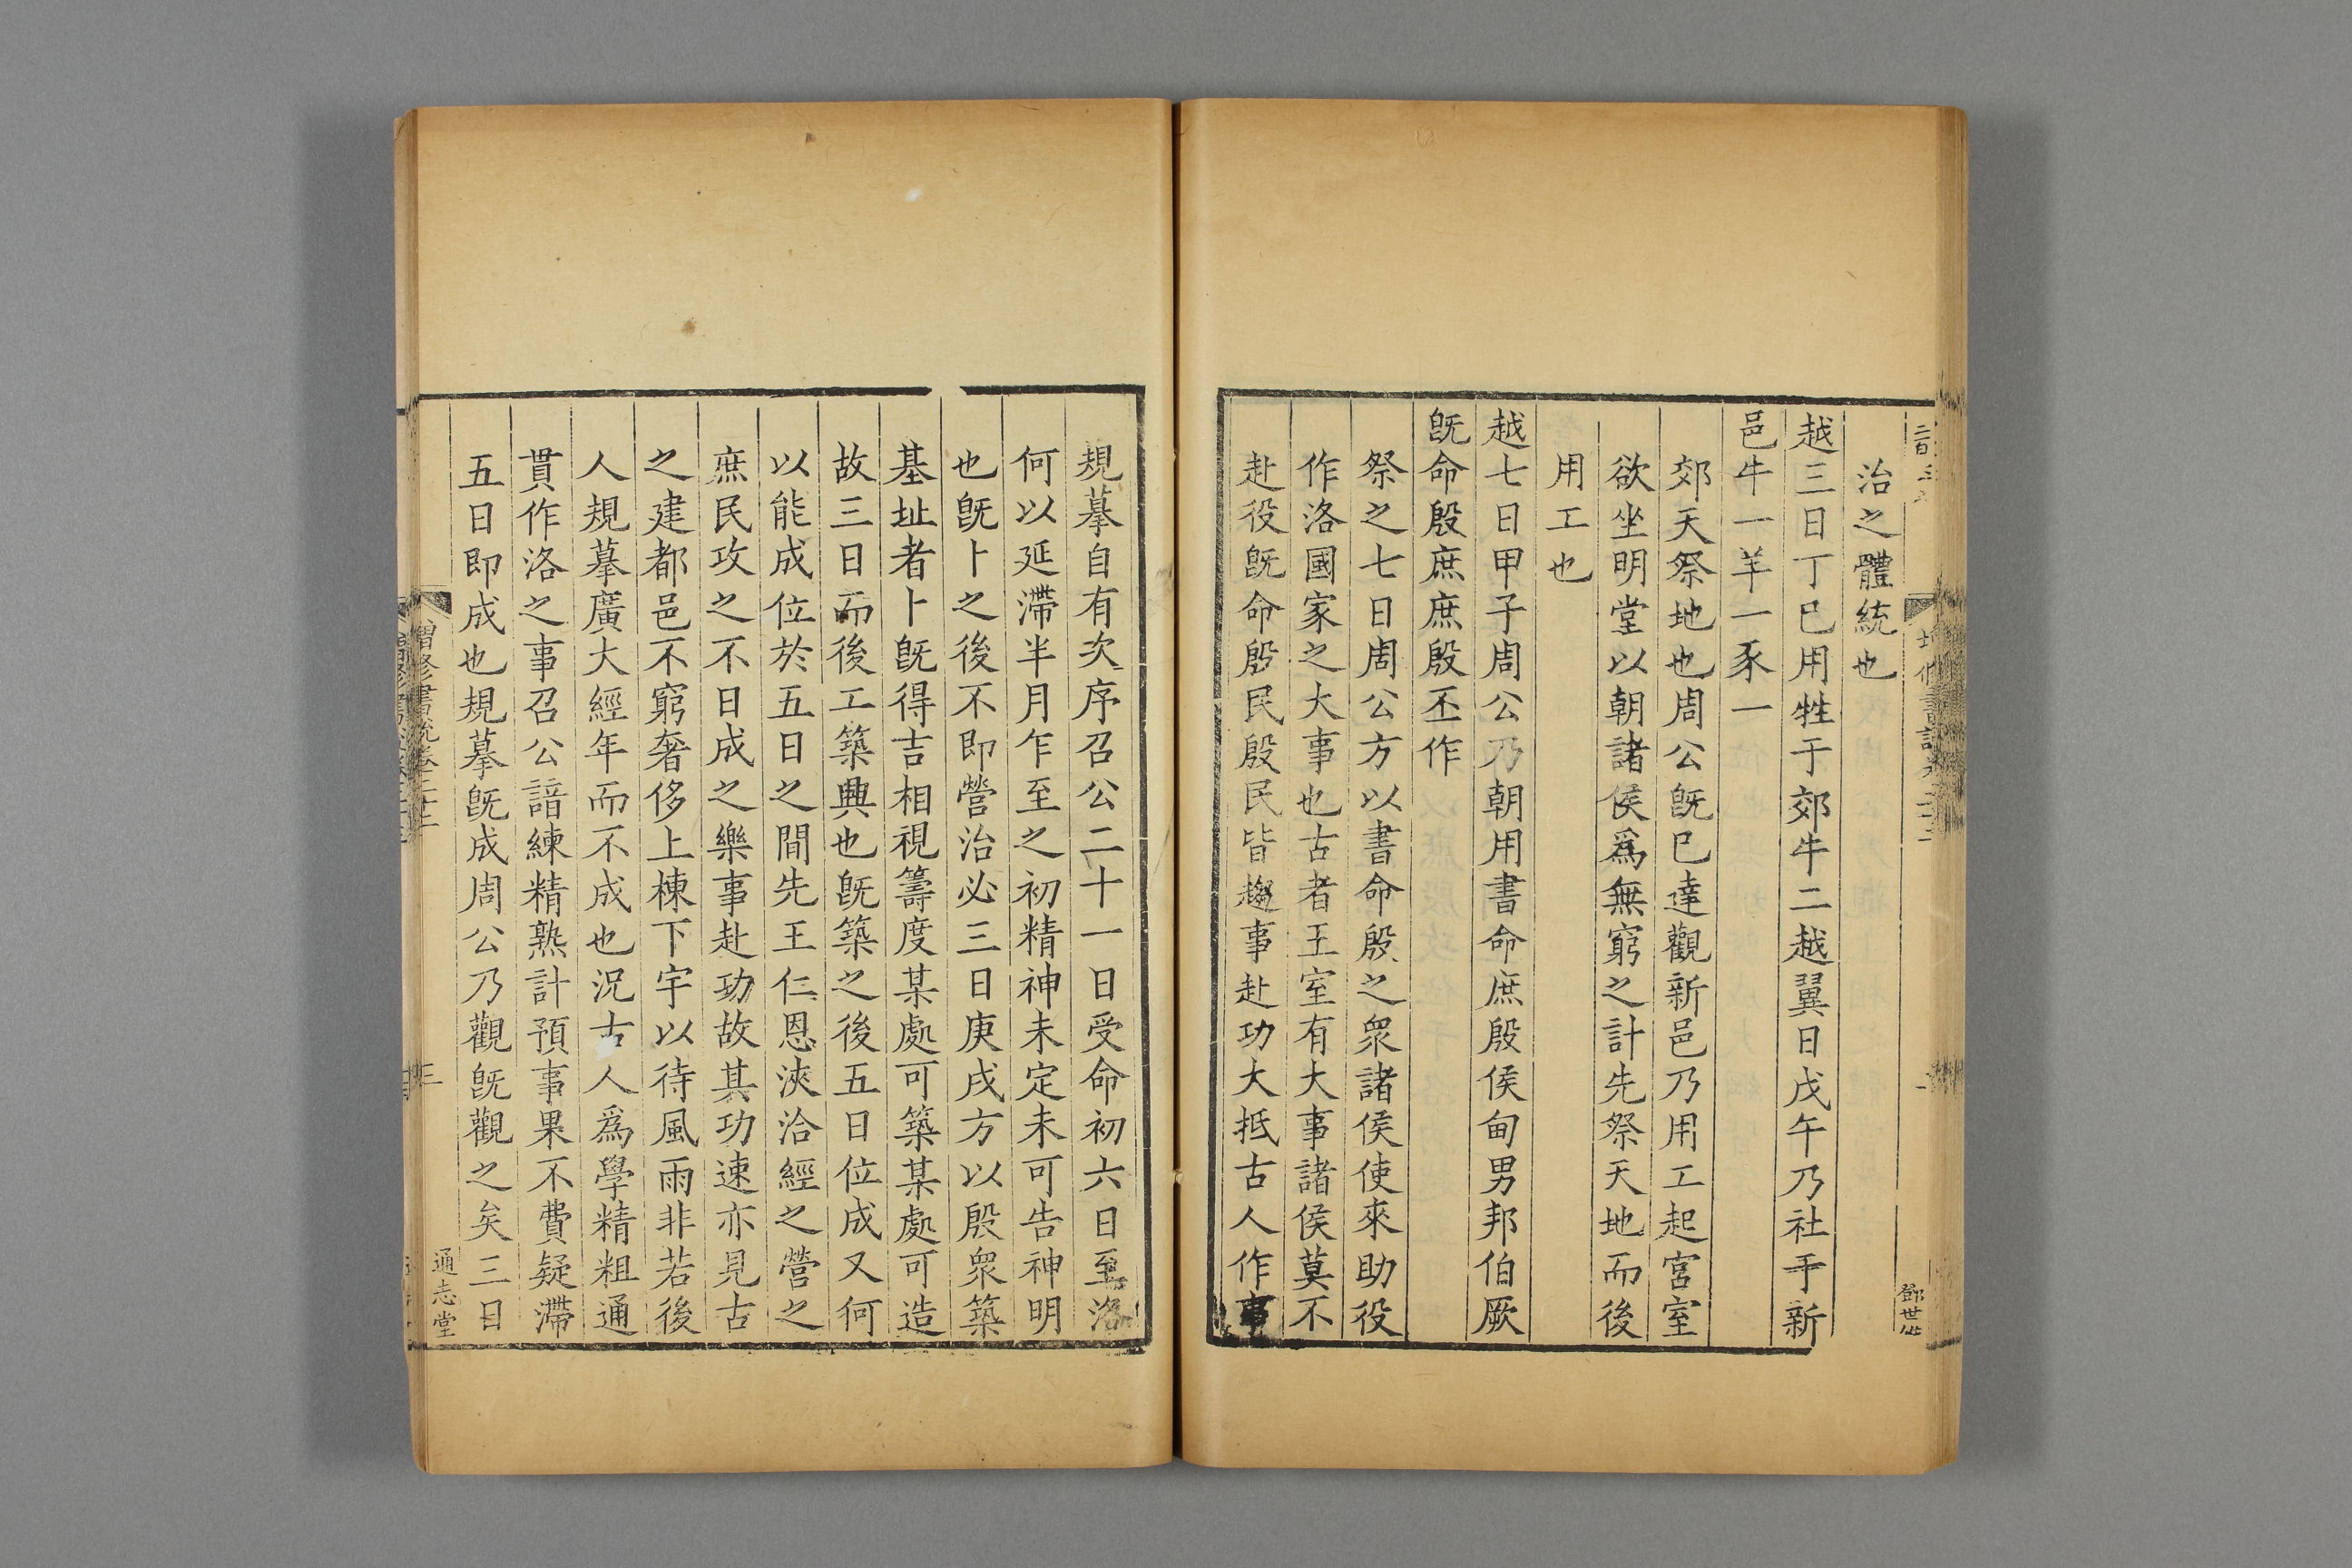 治之體統也
越三日丁巳用牲于郊牛二越翼日戊午乃社于新
邑牛一羊一豕一
郊天祭地也周公旣已達觀新邑乃用工起宮室
欲坐明堂以朝諸侯爲無窮之計先祭天地而後
用工也
越七日甲子周公乃朝用書命庶殷侯甸男邦伯厥
旣命殷庶庶殷丕作
祭之七日周公方以書命殷之衆諸侯使來助役
作洛國家之大事也古者王室有大事諸侯莫不
赴役旣命殷民殷民皆趨事赴功大抵古人作事
規摹自有次序召公二十一日受命初六日至洛
何以延滯半月乍至之初精神未定未可告神明
也旣卜之後不即營治必三日庚戌方以殷衆築
基址者卜旣得吉相視籌度某處可築某處可造
故三日而後工築興也旣築之後五日位成又何
以能成位於五日之間先王仁恩浹洽經之營之
庶民攻之不日成之樂事赴功故其功速亦見古
之建都邑不窮奢侈上棟下宇以待風雨非若後
人規摹廣大經年而不成也況古人爲學精粗通
貫作洛之事召公諳練精熟計預事果不費疑滯
五日即成也規摹旣成周公乃觀旣觀之矣三日
增修書說卷二十二
三
通志堂